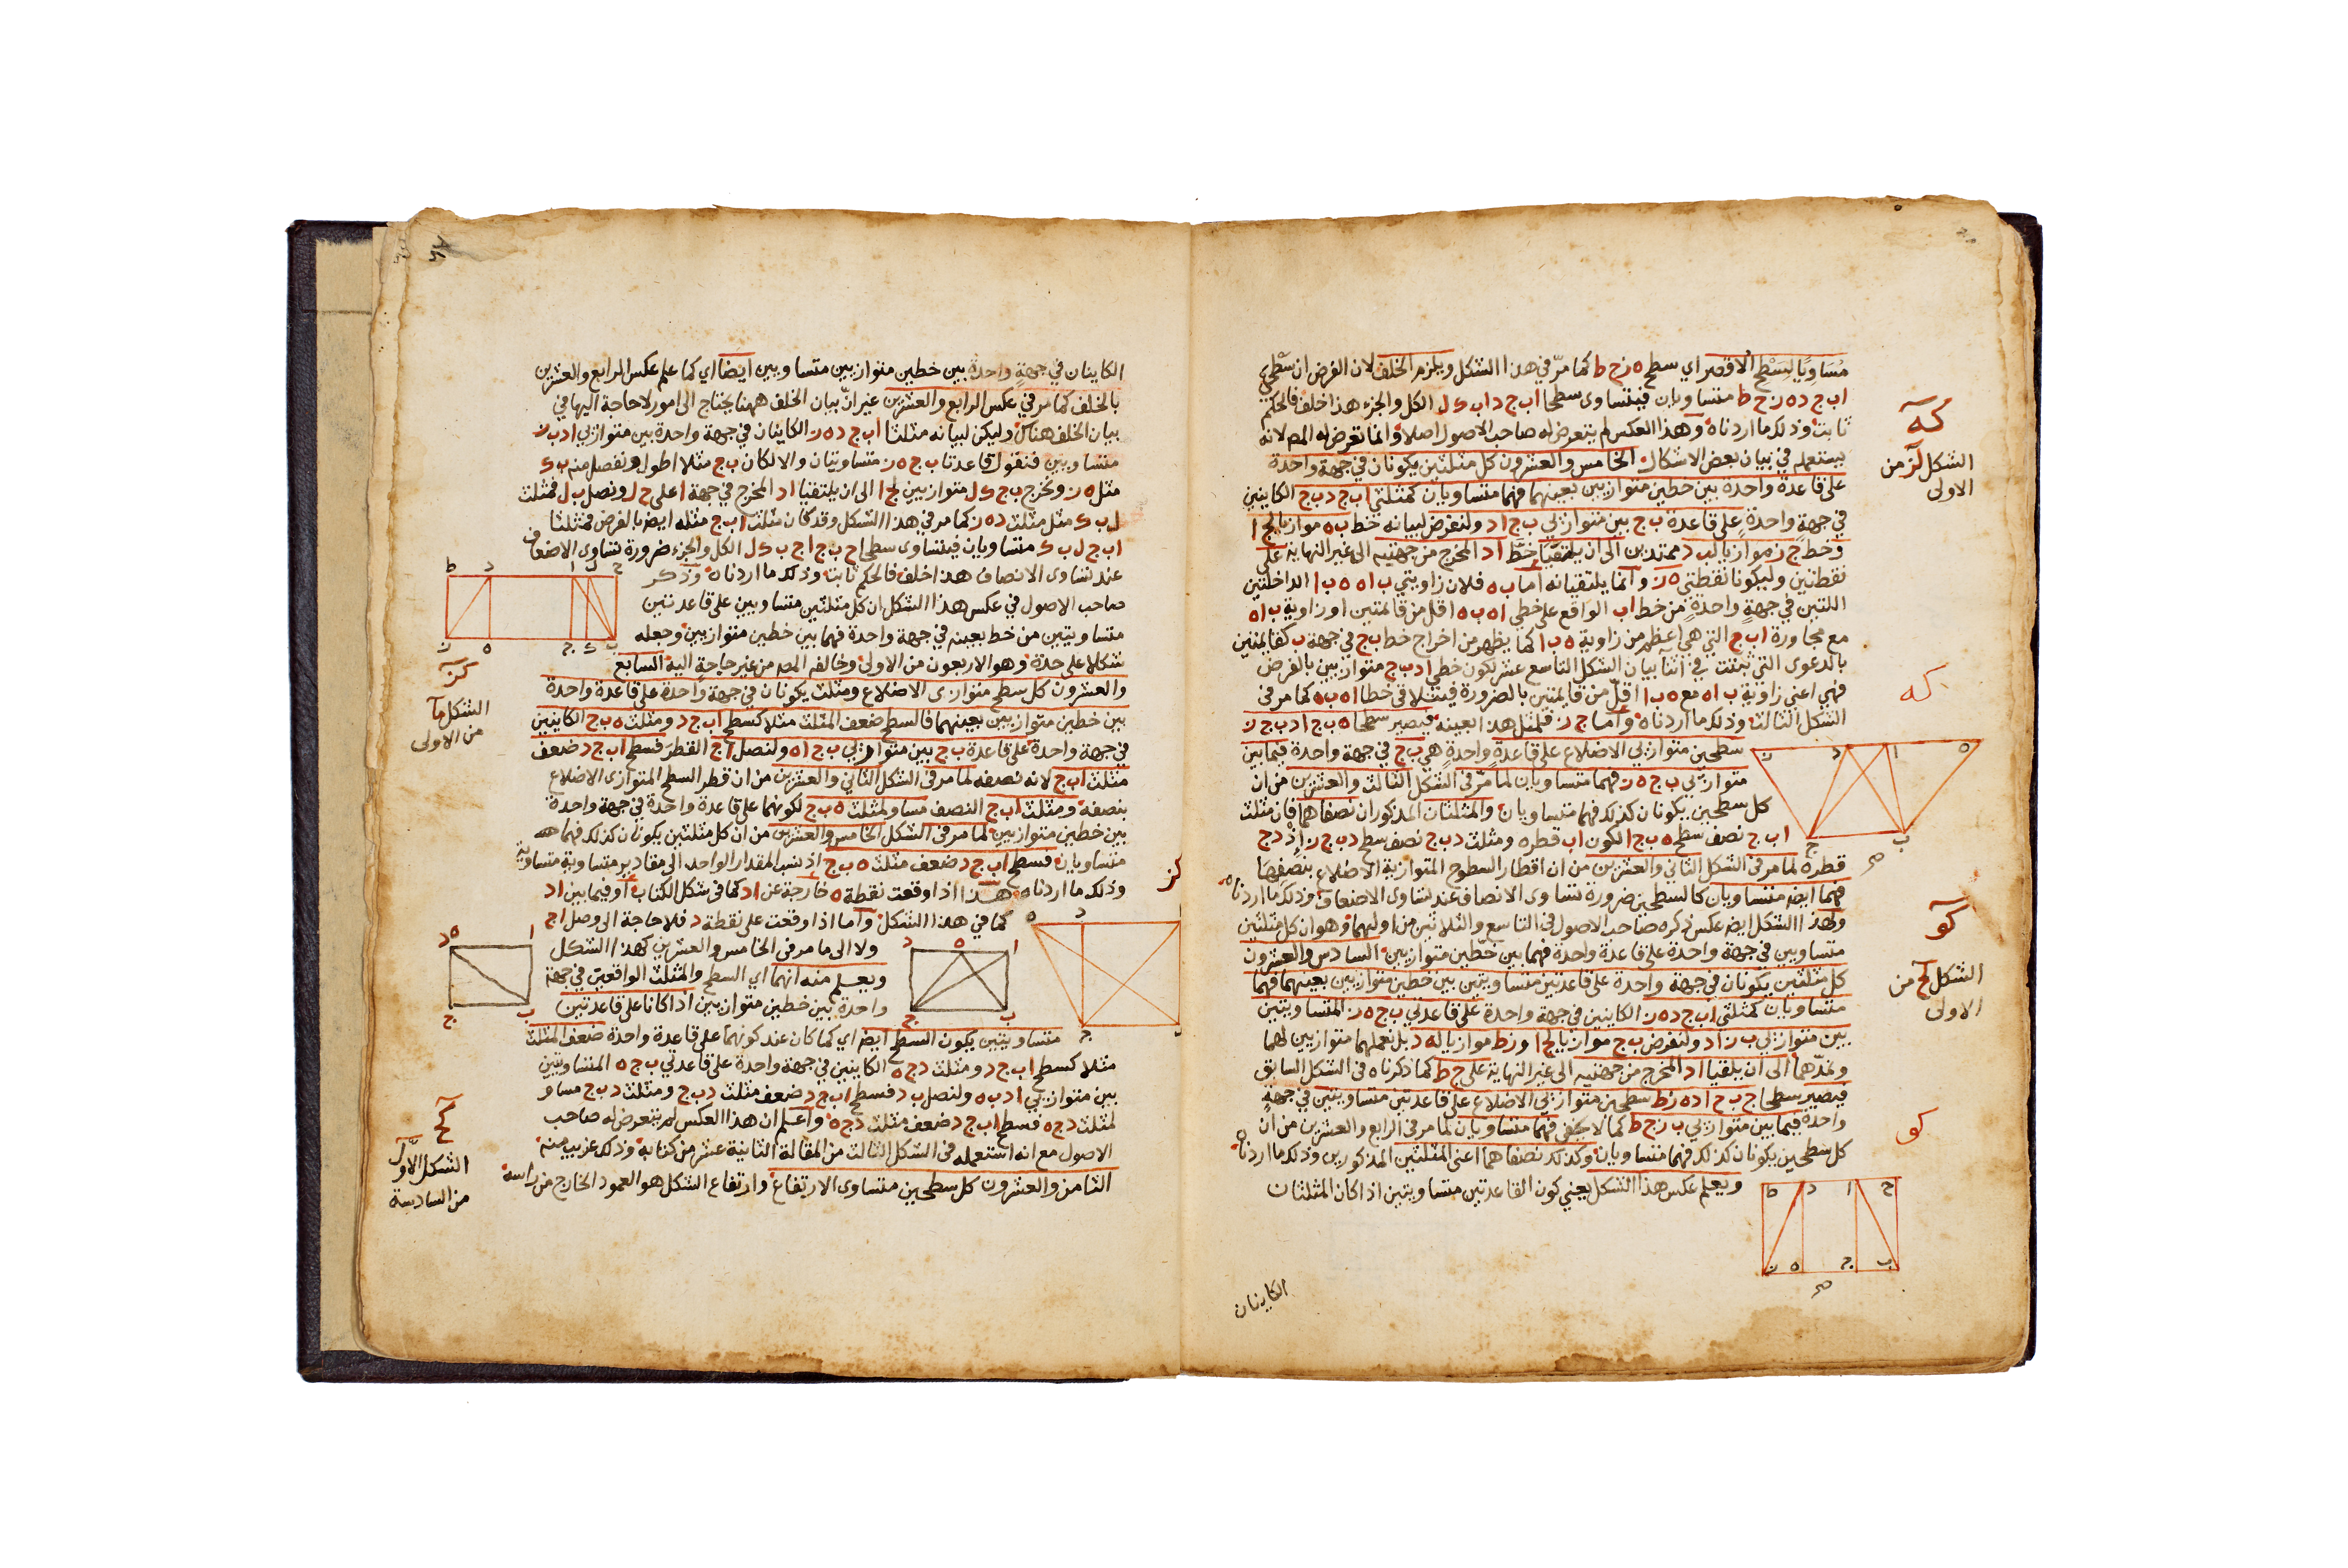 مساويا لسطح الاقصر اي سطح ه ز ح ط كما مرّ في هذا الشكل ويلزم الخلف لان الفرض ان سطحي
ا ب ج د ه ز ح ط متساويان فيتساوى سطحا ا ب ج د ا ب ك ل الكل والجزء هذا خلف فالحكم
ثابت وذلك ما اردناه وهذا العكس لم يتعرض له صاحب الاصول اصلا وانما تعرض له المص لانه
يستعمله في بيان بعض الاشكال الخامس والعشرون كل مثلثين يكونان في جهة واحدة
على قاعدة واحدة بين خطين متوازيين بعينهما فهما متساويان كمثلثي ا ب ج د ب ج الكاينين
في جهة واحدة على قاعدة ب ج بين متوازيي ب ج ا د ولنفرض لبيانه خط ب ه موازيا لج ا
وخط ج ز موازيا لب د ممتدين الى ان يلتقيا خط ا د المخرج من جهتيه الى غير النهاية على
نقطتين وليكونا نقطتي ه ز وانما يلتقيانه اما ب ه فلان زاويتي ب ا ه ه ب ا الداخلتين
اللتين في جهة واحدة من خط ا ب الواقع على خطي ا ه ب ه اقل من قائمتين اذ زاوية ب ا ه
مع مجاورة ا ب ج التي هي اعظم من زاوية ه ب ا كما يظهر من اخراج خط ب ج في جهة ب كقائمتين
بالدعوى التي ثبتت في اثنا بيان الشكل التاسع عشر لكون خطي ا د ب ج متوازيين بالفرض
فهي اعني زاوية ب ا ه مع ه ب ا اقل من قائمتين بالضرورة فيتلاقى خطا ا ه ب ه كما مر في
الشكل الثالث وذلك ما اردناه واما ج ز فلمثل هذا بعينه فيصير سطحا ه ب ج ا د ب ج ز
سطحين متوازيي الاضلاع على قاعدة واحدة هي ب ج في جهة واحدة فيما بين
متوازيي ب ج ه ز فهما متساويان لما مر في الشكل الثالث والعشرين من ان
كل سطحين يكونان كذلك فهما متساويان والمثلثان المذكوران نصفاهما فان مثلث
ا ب ج نصف سطح ه ب ج ا لكون ا ب قطره ومثلث د ب ج نصف سطح د ب ج ز اذ د ج
قطره لما مر في الشكل الثاني والعشرين من ان اقطار السطوح المتوازية الاضلاع ينصفها
فهما ايضه متساويان كالسطحين ضرورة تساوى الانصاف عند تساوى الاضعاف وذلك ما اردناه
ولهذا الشكل ايضه عكس ذكره صاحب الاصول في التاسع والثلاثين من اوليهما وهو ان كل مثلثين
متساويين في جهة واحدة على قاعدة واحدة فهما بين خطين متوازيين السادس والعشرون
كل مثلثين يكونان في جهة واحدة على قاعدتين متساويتين بين خطين متوازيين بعينهما فهما
متساويان كمثلثي ا ب ج د ه ز الكاينين في جهة واحدة على قاعدتي ب ج ه ز المتساويتين
بين متوازيي ب ز ا د ولنفرض ب ح موازيا لج ا و ز ط موازيا له د بل نعملهما متوازيين لهما
ونمدهما الى ان يلتقيا ا د المخرج من جهتيه الى غير النهاية على ح ط كما ذكرناه في الشكل السابق
فيصير سطحا ج ب ح ا د ه ز ط سطحين متوازيي الاضلاع على قاعدتين متساويتين في جهة
واحدة فيما بين متوازيي ب ز ح ط كما لا يخفى فهما متساويان لما مر في الرابع والعشرين من ان
كل سطحين يكونان كذلك فهما متساويان وكذلك نصفاهما اعني المثلثين المذكورين وذلك ما اردناه
ويعلم عكس هذا الشكل يعني كون القاعدتين متساويتين اذا كان المثلثان
الكاينان
كه
الشكل لز من
الاولى
كه
كو
الشكل لح من
الاولى
كو
الكاينان في جهة واحدة بين خطين متوازيين متساويين ايضا اي كما علم عكس الرابع والعشرين
بالخلف كما مر في عكس الرابع والعشرين غير ان بيان الخلف ههنا يحتاج الى امور لا حاجة اليها في
بيان الخلف هناك وليكن لبيانه مثلثا ا ب ج د ه ز الكاينان في جهة واحدة بين متوازيي ا د ب ز
متساويين فنقول قاعدتا ب ج ه ز متساويتان والا لكان ب ج مثلا اطول ونفصل منه ب ك
مثل ه ز ونخرج ب ح ك ل متوازيين لج ا الى ان يلتقيا ا د المخرج في جهة ا على ح ل ونصل ب ل فمثلث
ل ب ك مثل مثلث د ه ز كما مر في هذا الشكل وقد كان مثلث ا ب ج مثله ايضه بالفرض فمثلثا
ا ب ج ل ب ك متساويان فيتساوى سطحا ح ب ج ا ح ب ك ل الكل والجزء ضرورة تساوى الاضعاف
عند تساوى الانصاف هذا خلف فالحكم ثابت وذلك ما اردناه وذكر
صاحب الاصول في عكس هذا الشكل ان كل مثلثين متساويين على قاعدتين
متساويتين من خط بعينه في جهة واحدة فهما بين خطين متوازيين وجعله
شكلا على حدة وهو الاربعون من الاولى وخالفه المص من غير حاجة اليه السابع
والعشرون كل سطح متوازى الاضلاع ومثلث يكونان في جهة واحدة على قاعدة واحدة
بين خطين متوازيين بعينهما فالسطح ضعف المثلث مثلا كسطح ا ب ج د ومثلث ه ب ج الكاينين
في جهة واحدة على قاعدة ب ج بين متوازيي ب ج ا ه ولنصل ا ج القطر فسطح ا ب ج د ضعف
مثلث ا ب ج لانه نصفه لما مر في الشكل الثاني والعشرين من ان قطر السطح المتوازى الاضلاع
ينصفه ومثلث ا ب ج النصف مساو لمثلث ه ب ج لكونهما على قاعدة واحدة في جهة واحدة
بين خطين متوازيين لما مر في الشكل الخامس والعشرين من ان كل مثلثين يكونان كذلك فهما
متساويان فسطح ا ب ج د ضعف مثلث ه ب ج اذ نسب المقدار الواحد الى مقادير متساوية متساوية
وذلك ما اردناه هذا اذا وقعت نقطة ه خارجة عن ا د كما في شكل الكتاب او فيما بين ا د
كما في هذا الشكل واما اذا وقعت على نقطة د فلا حاجة الى وصل ا ج
ولا الى ما مر في الخامس والعشرين كهذا الشكل
ويعلم منه انهما اي السطح والمثلث الواقعين في جهة
واحدة بين خطين متوازيين اذا كانا على قاعدتين
متساويتين يكون السطح ايضه اي كما كان عند كونهما على قاعدة واحدة ضعف المثلث
مثلا كسطح ا ب ج د ومثلث د ج ه الكاينين في جهة واحدة على قاعدتي ب ج ه المتساويتين
بين متوازيي ا د ب ه ولنصل ب د فسطح ا ب ج د ضعف مثلث د ب ج ومثلث د ب ج مساو
لمثلث د ج ه فسطح ا ب ج د ضعف مثلث د ج ه واعلم ان هذا العكس لم يتعرض له صاحب
الاصول مع انه استعمله في الشكل الثالث من المقالة الثانية عشر من كتابه وذلك غريب منه
الثامن والعشرون كل سطحين متساوى الارتفاع وارتفاع الشكل هو العمود الخارج من راسه
كز
الشكل ما
من الاولى
كز
كح
الشكل الاول
من السادسة